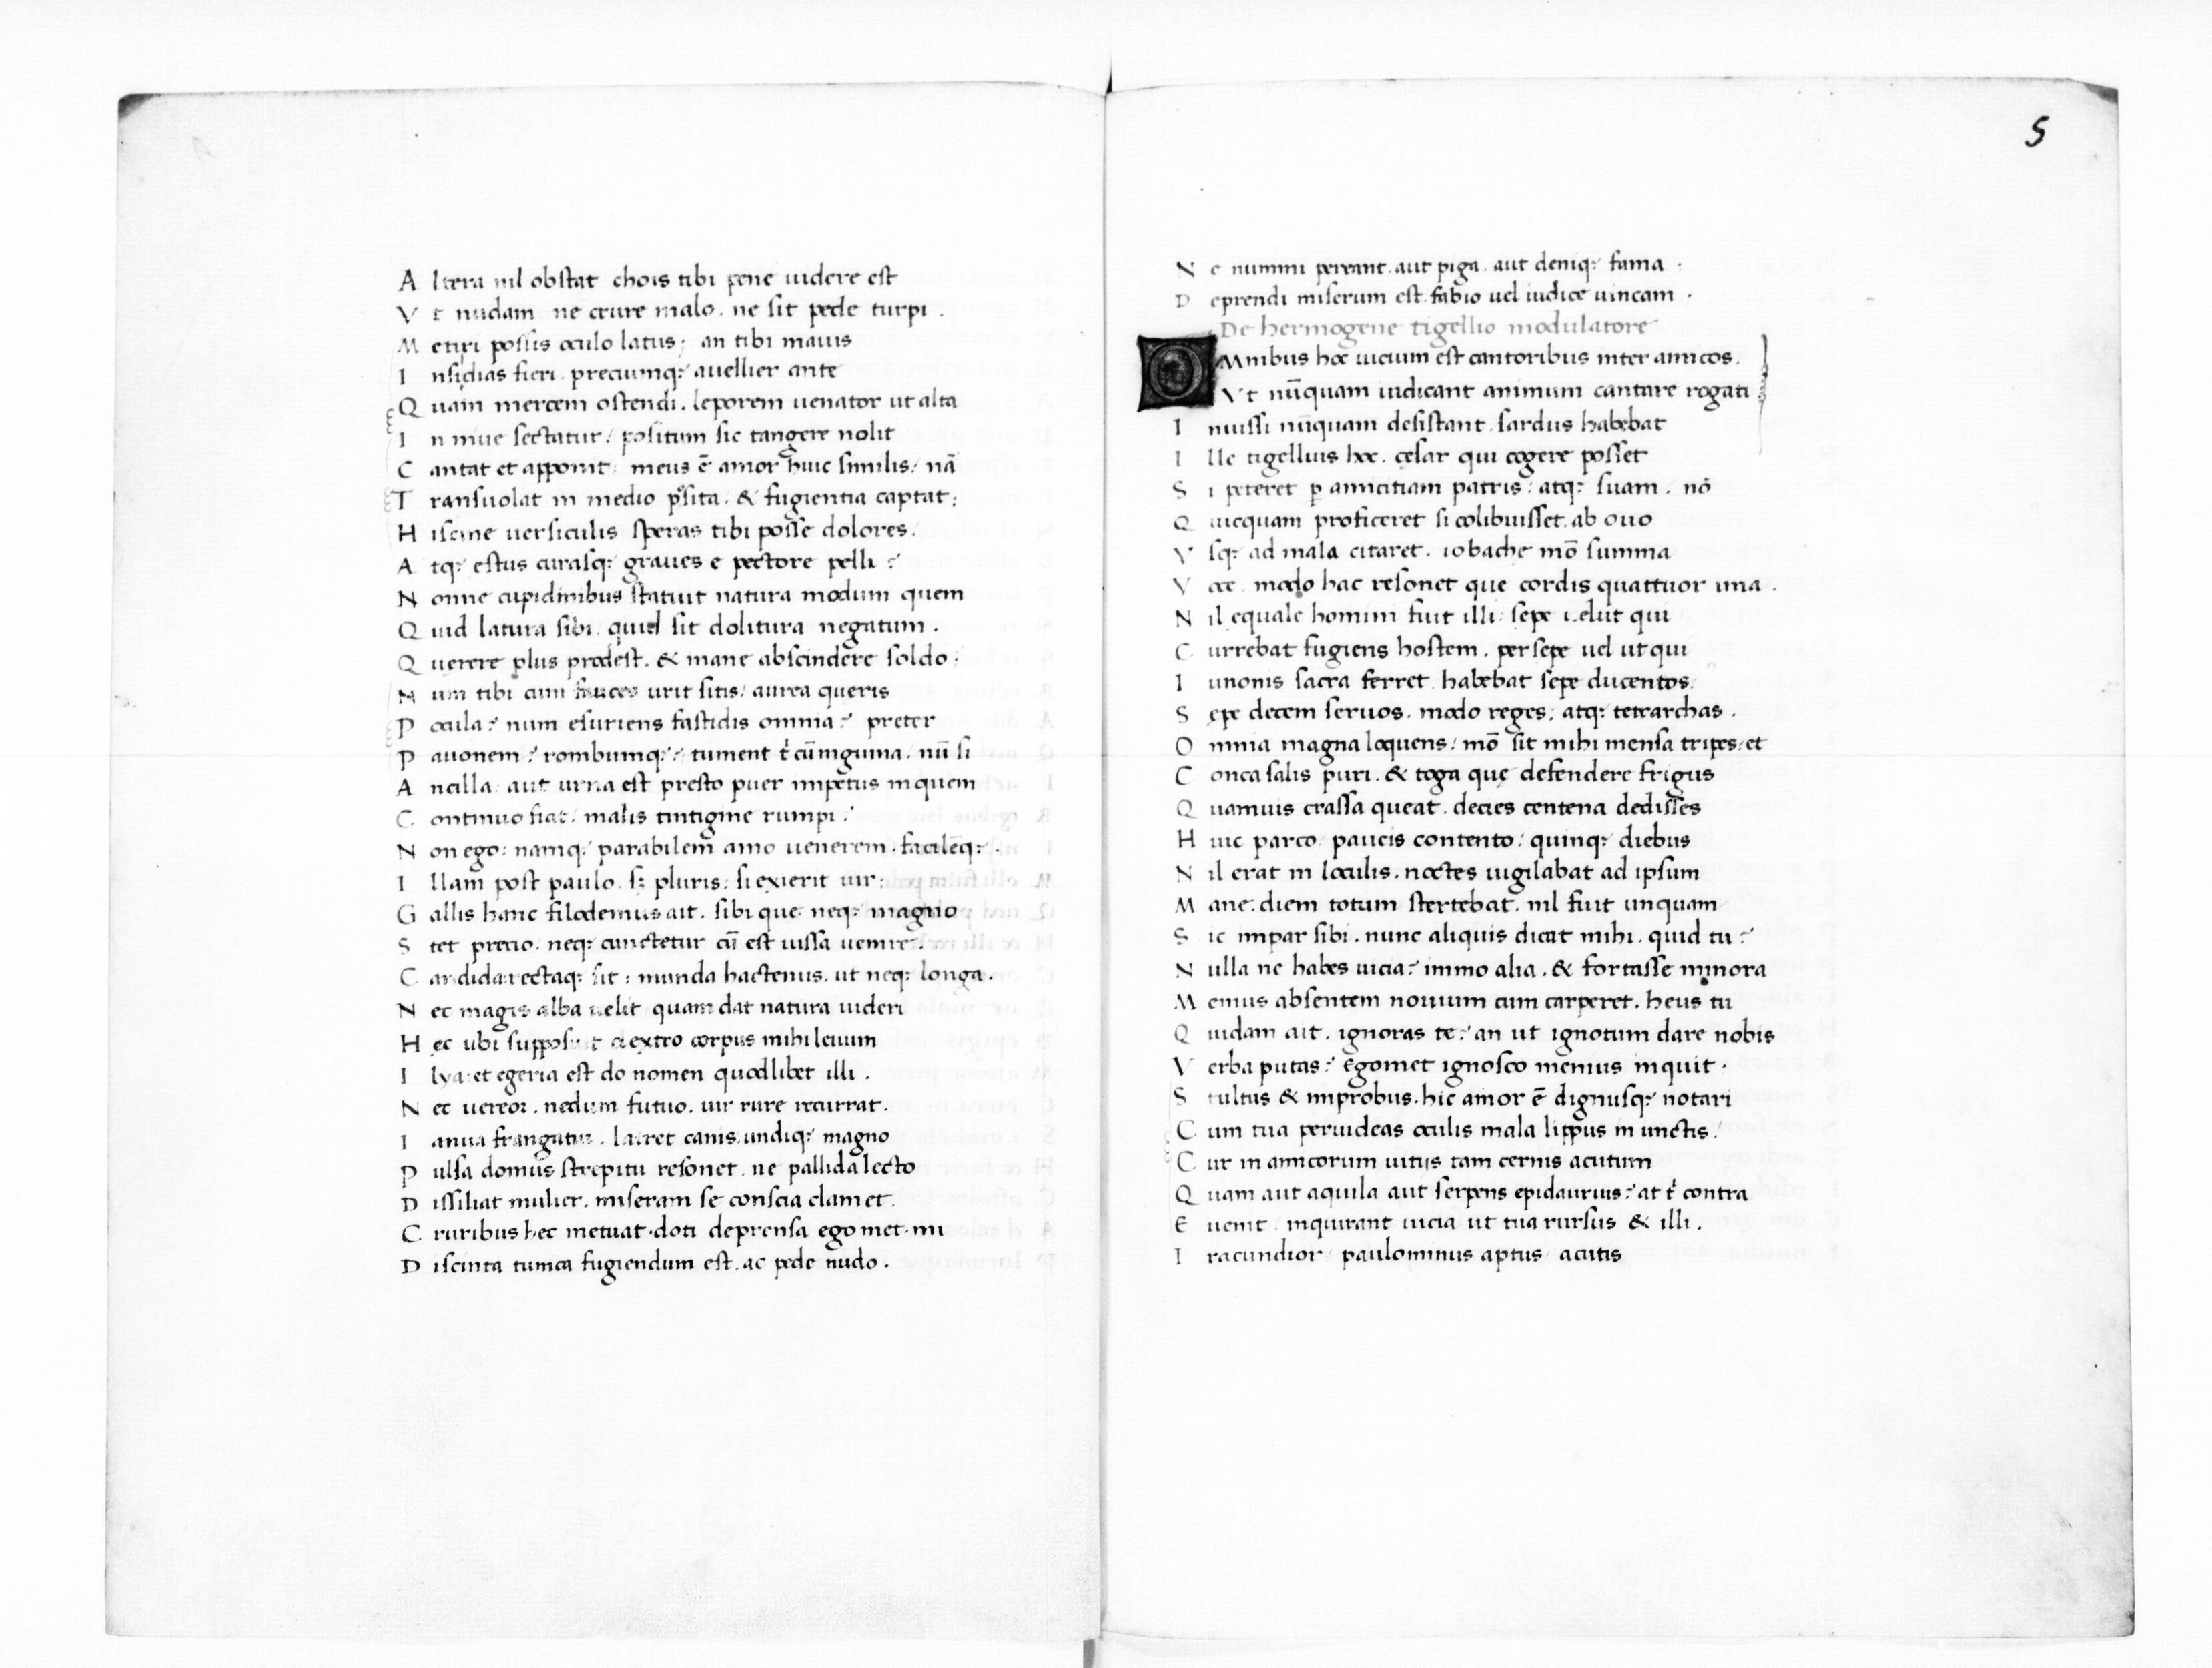 A ltera nil obstat chois tibi pene uidere est
V t nudam ne crure malo. ne sit pede turpi.
M etiri possis oculo latus; an tibi mauis
I nsidias fieri. preciumq; auellier ante
Q uam mercem ostendi. leporem uenator ut alta
I n niue sectatur / positum sic tangere nolit
C antat et apponit: meus ē amor huic similis / nā
T ransuolat in medio posita. & fugientia captat;
H iscine uersiculis speras tibi posse dolores.
A tq; estus curasq; graues e pectore pelli?
N onne cupidinibus statuit natura modum quem
Q uid latura sibi. quid sit dolitura negatum.
Q uerere plus prodest. & inane abscindere soldo;
N um tibi cum fauces urit sitis / aurea queris
P ocula? num esuriens fastidis omnia? preter
P auonem? rombumq;? tument t' cū inguina. nū si
A ncilla aut urna est presto puer impetus inquem
C ontinuo fiat / malis tintigine rumpi?
N on ego: namq; parabilem amo uenerem. facilēq;.
I llam post paulo. sꝫ pluris: si exierit uir:
G allis hanc filodemus ait. sibi que neq; magno
S tet precio. neq; cunctetur cū est iussa uenire.
C andida rectaq; sit: munda hactenus. ut neq; longa.
N ec magis alba uelit quam dat natura uideri
H ęc ubi supposuit dextro corpus mihi leuum
I lya et egeria est do nomen quodlibet illi.
N ec uereor. nedum futuo. uir rure recurrat.
I anua frangatur. latret canis undiq; magno
P ulsa domus strepitu resonet. ne pallida lecto
D issiliat mulier. miseram se conscia clamet.
C ruribus hec metuat. doti deprensa ego met. mi
D iscinta tunica fugiendum est. ac pede nudo.
5
N e nummi pereant. aut piga. aut deniq; fama.
D eprendi miserum est. fabio uel iudice uincam.
De hermogene tigellio modulatore
O Mnibus hoc uicium est cantoribus inter amicos.
Vt nūquam iudicant animum cantare rogati
I niussi nūquam desistant. sardus habebat
I lle tigellius hoc. cęsar qui cogere posset
S i peteret ꝑ amicitiam patris: atq; suam. nō
Q uicquam proficeret si colibuisset. ab ouo
V sq; ad mala citaret. iobache mō summa
V oce. modo hac resonet que cordis quattuor ima.
N il equale homini fuit illi: sepe uelut qui
C urrebat fugiens hostem. persepe uel ut qui
I unonis sacra ferret. habebat sepe ducentos.
S epe decem seruos. modo reges; atq; tetrarchas.
O mnia magna loquens: mō sit mihi mensa tripes: et
C onca salis puri. & toga quę defendere frigus
Q uamuis crassa queat. decies centena dedisses
H uic parco paucis contento: quinq; diebus
N il erat in loculis. noctes uigilabat ad ipsum
M ane. diem totum stertebat. nil fuit unquam
S ic impar sibi. nunc aliquis dicat mihi. quid tu?
N ulla ne habes uicia? immo alia. & fortasse minora
M enius absentem nouium cum carperet. heus tu
Q uidam ait. ignoras te? an ut ignotum dare nobis
V erba putas? egomet ignosco menius inquit.
S tultus & improbus. hic amor ē dignusq; notari
C um tua peruideas oculis mala lippus in unctis.
C ur in amicorum uitijs tam cernis acutum
Q uam aut aquila aut serpens epidaurius? at t' contra
E uenit inquirant uicia ut tua rursus & illi.
I racundior paulominus aptus acutis